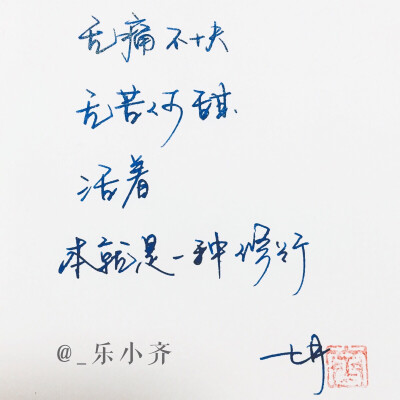 无痛不十夫
无苦何甜
活着
本就是一种修行
@_乐小齐
七月